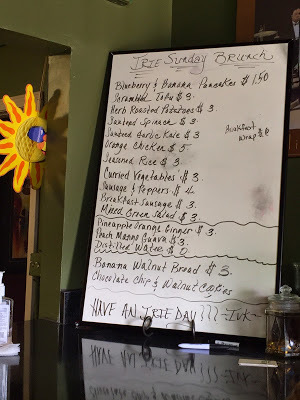 IRIE Sunday Brunch
Blueberry & Banana Pancakes $ 1.50
Scrambled Tofu $ 3.
Herb Roasted Potatoes $ 3.
Sauteed Spinach $ 3.
Sauteed Garlic Kale $ 3.
Orange Chicken $ 5.
Seasoned Rice $ 3.
Curried Vegetables $ 3.
Sausage & Peppers $ 4.
Breakfast Sausage $ 3.
Mixed Green Salad $ 3.
Breakfast
Wrap $ 8
Pineapple Orange Ginger $ 3.
Peach Mango Guava $ 3.
Distilled Water $
Banana Walnut Bread $ 3.
Chocolate Chip & Walnut Cookies
HAVE AN IRIE DAY!!!